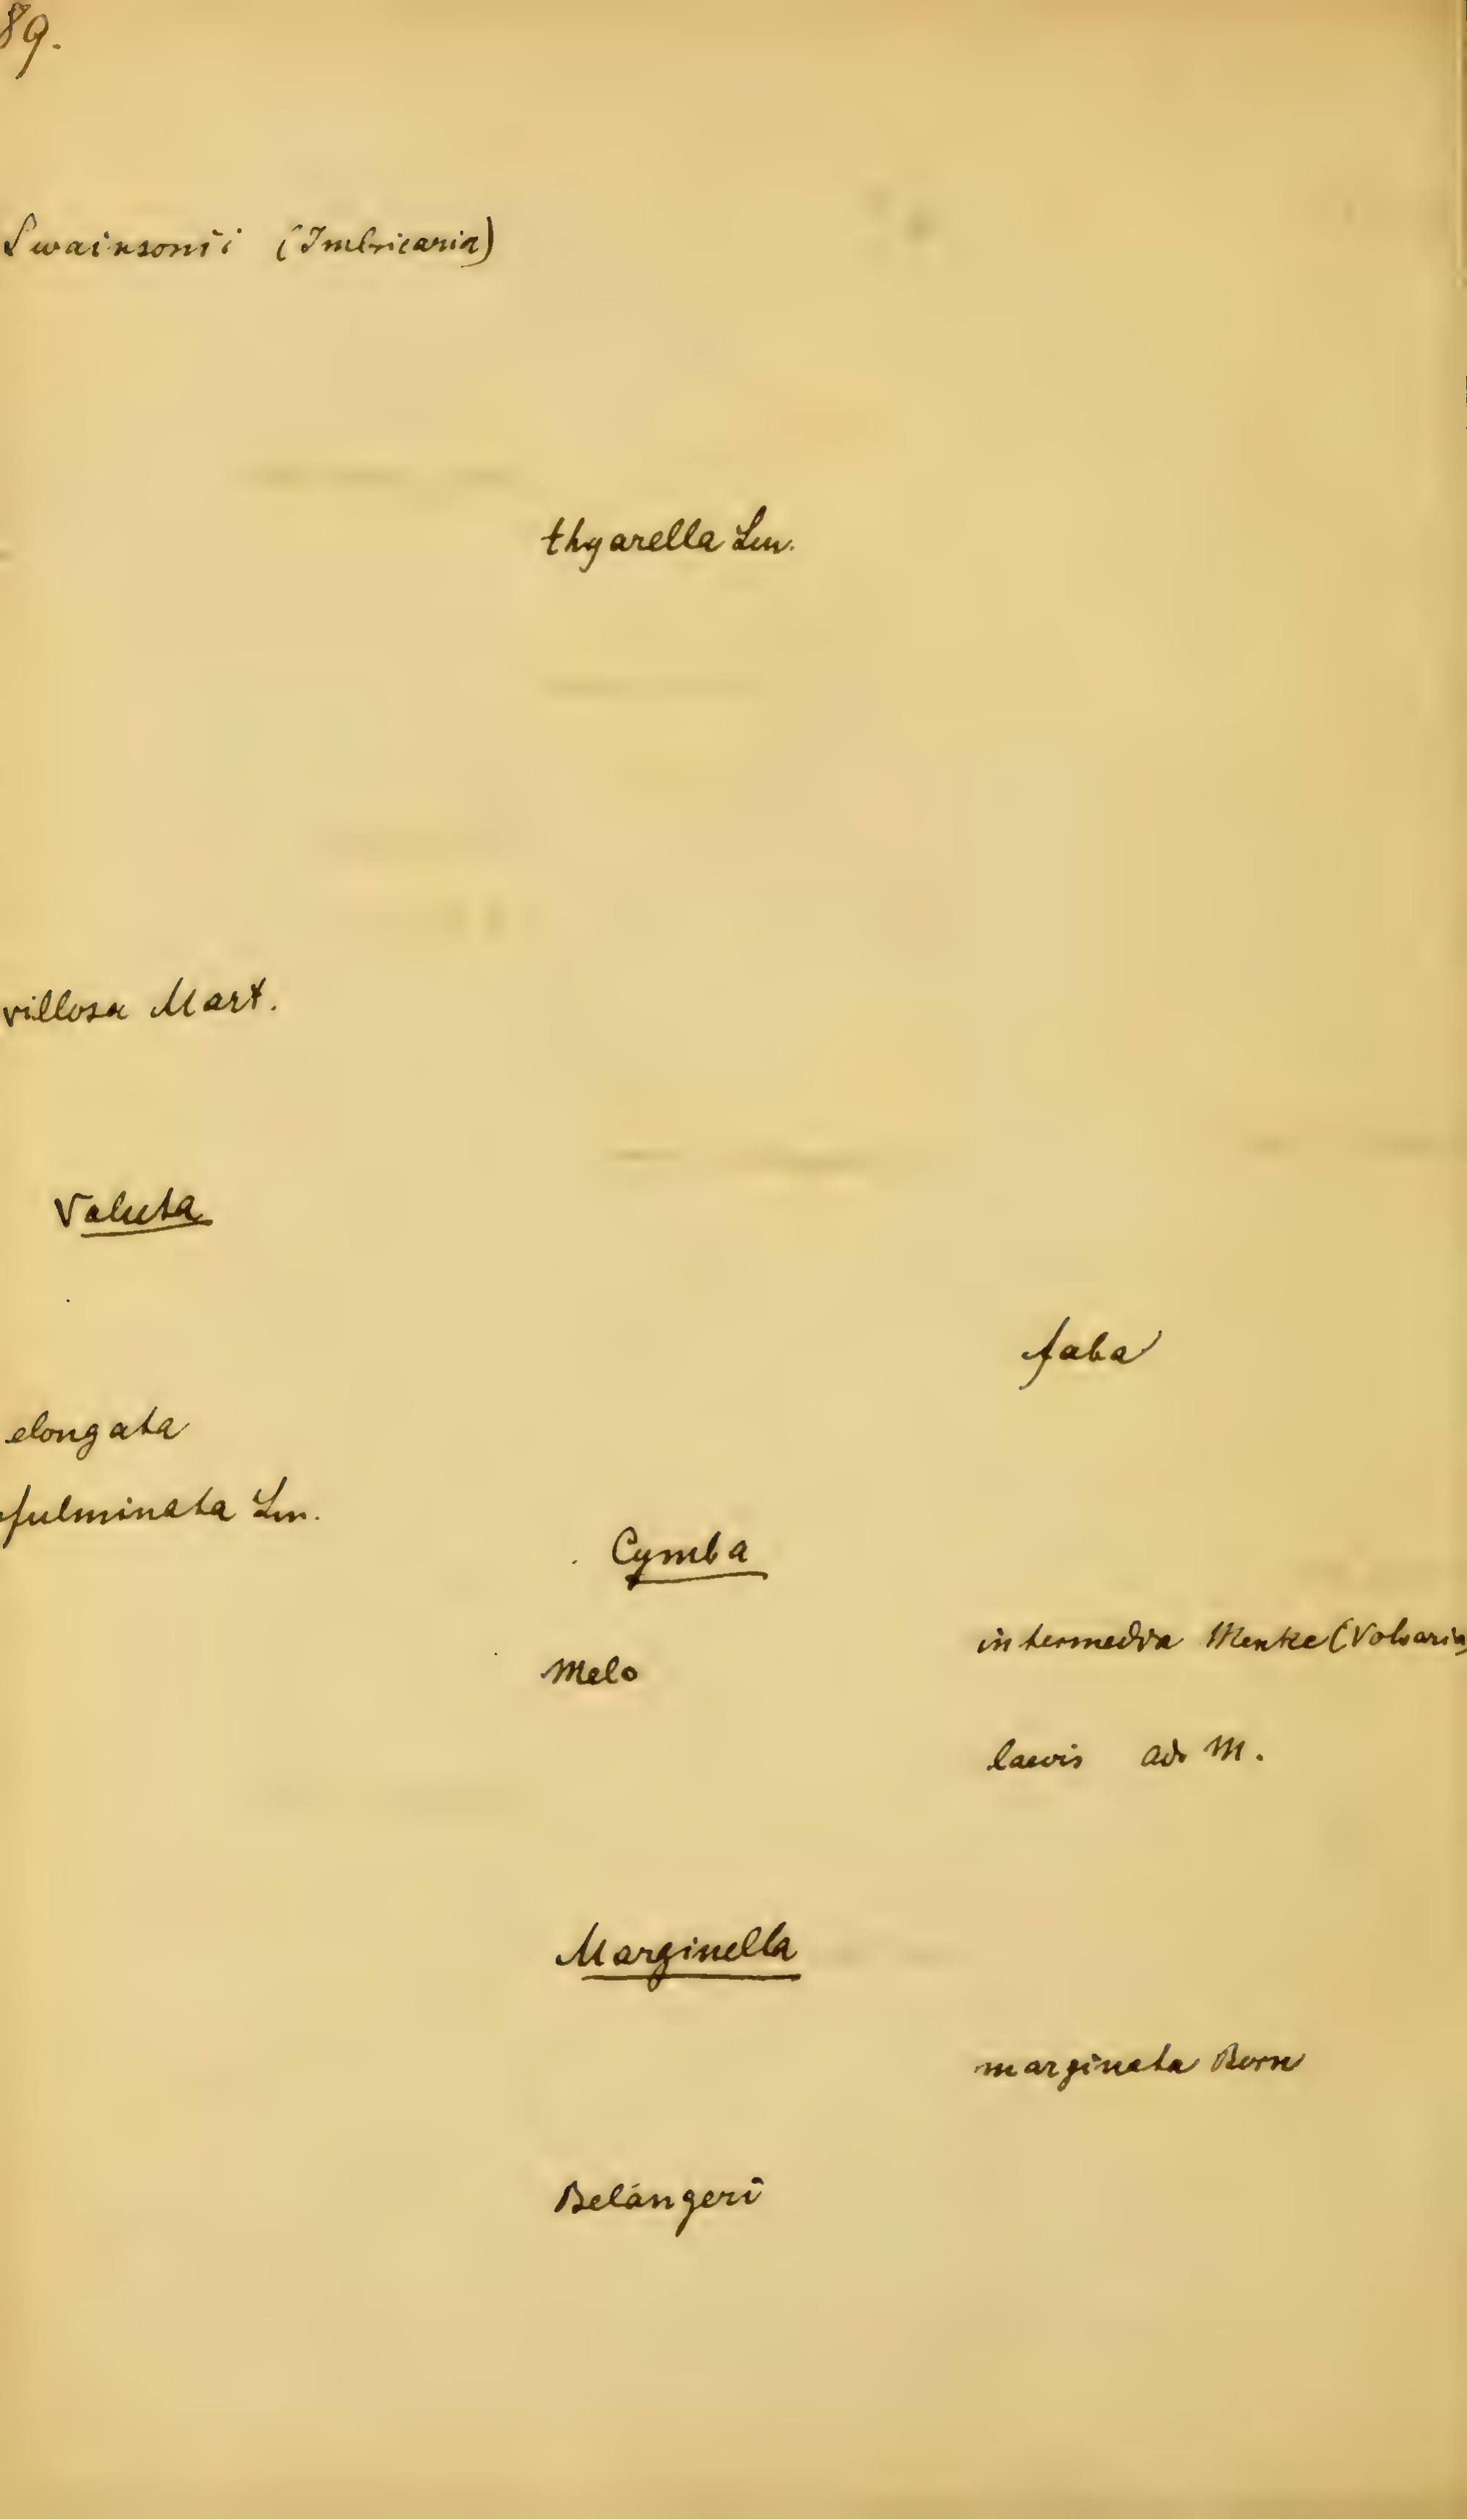 89.
Swainsonii (Imbricaria)
thyarella Lin.
villosa Mart.
Voluta
faba
elongata
fulminata Lin.
Cymba
intermedia Menke (Volvaria)
Melo
laevis ad M.
Marginella
marginata Born
Belángeri